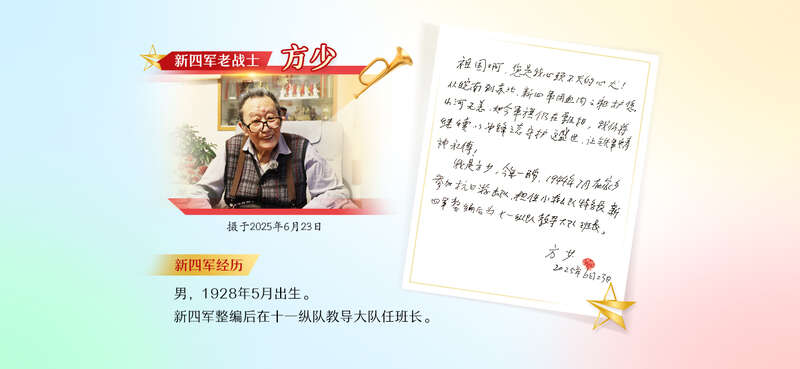 新四军老战士
方少
摄于2025年6月23日
新四军经历
男，1928年5月出生。
新四军整编后在十一纵队教导大队任班长。
祖国啊，您是我心头不灭的心火！
从皖南到苏北，新四军用血肉之躯护您
山河无恙，如今军旗仍在飘扬，我们将
继续以 守护这盛世，让铁军精
神永传！
我是方少，今年 1944年7月在家乡
参加抗日游击队，担任小
四军整编后为十一纵队教导大队班长。
方少
2025年6月23日